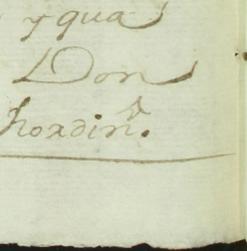 y qua
Don
hordin.º